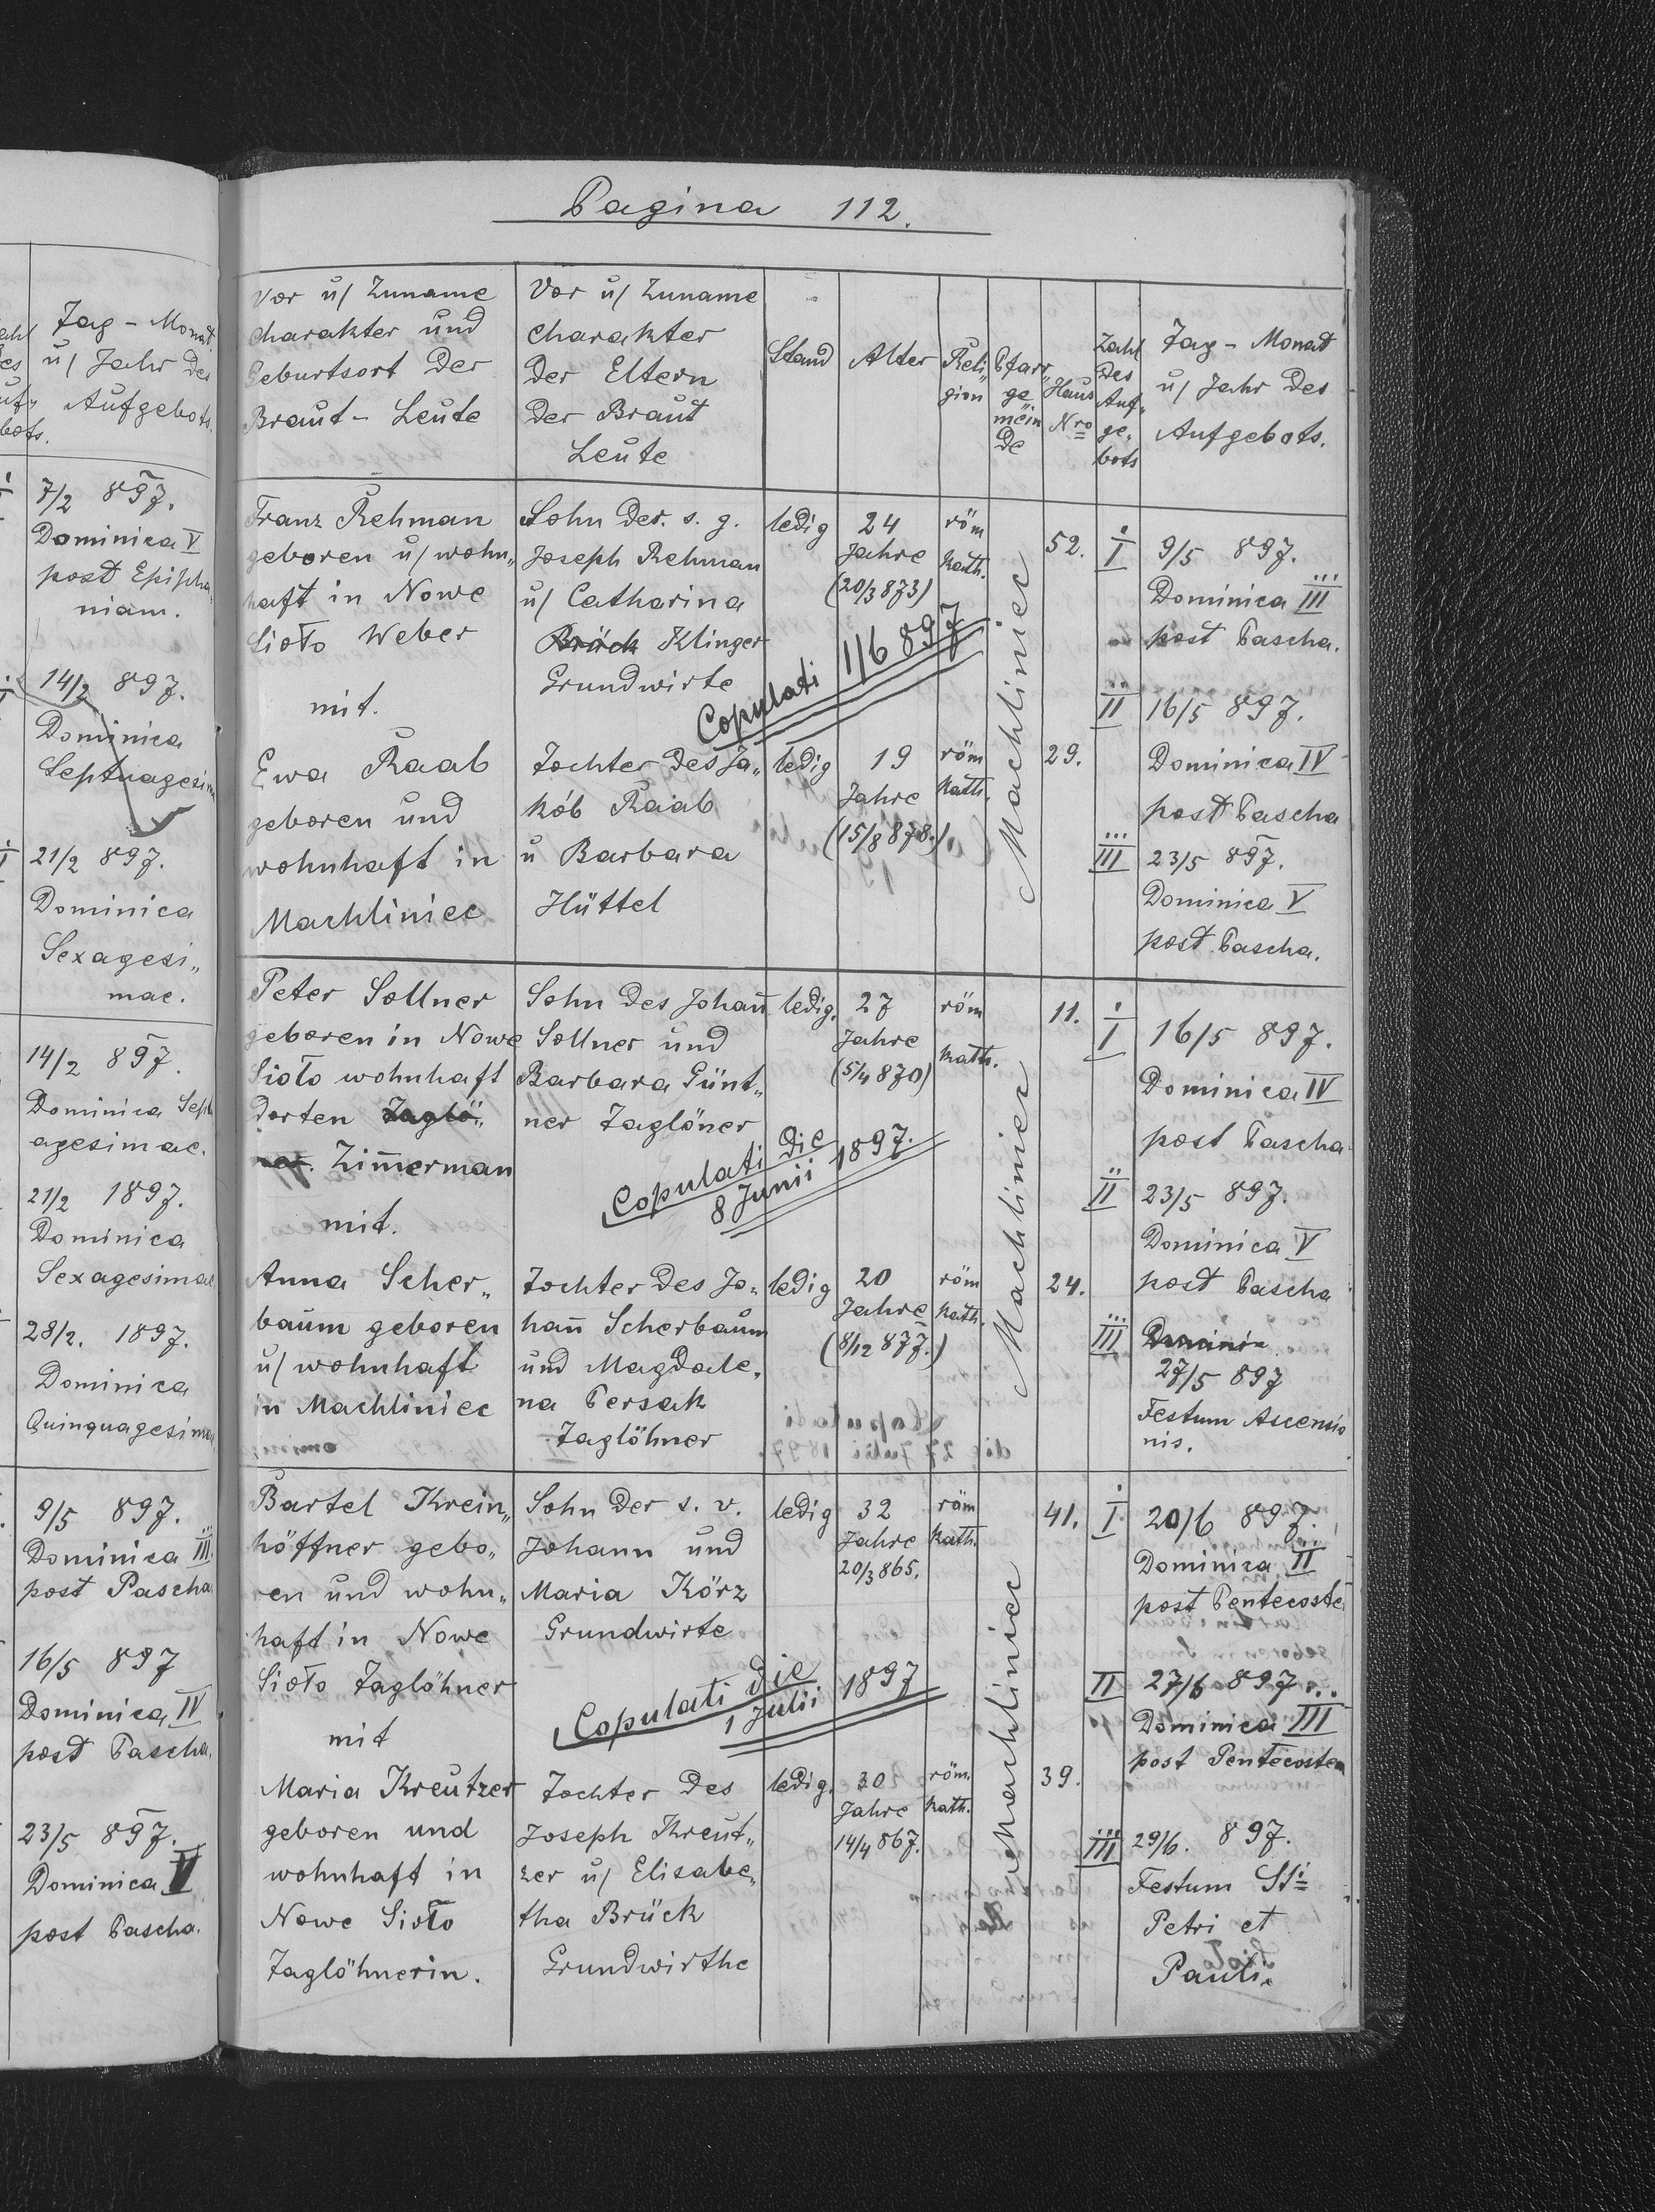 Tag - Monat
u/ Jahr des
Aufgebots.
7/2 897.
Dominica V
post Epipha
niam.
14/2 897.
Dominica
Septuagesim
21/2 897.
Dominica
Sexagesi„
mae.
14/2 897.
Dominica Sept
agesimae.
21/2 1897.
Dominica
Sexagesimae
28/2. 1897.
Dominica
Quinquagesima
9/5 897.
Dominica III
post Pascha
16/5 897
Dominica IV
post Pascha.
23/5 897.
Dominica V
post Pascha.
Pagina 112.
Vor u/ Zuname
Charakter und
Geburtsort der
Braut - Leute
Vor u/ Zuname
Charakter
der Eltern
der Braut
Leute
Stand
Alter
Reli„
gion
Pfarr„
ge
mein
de
Haus
Nro
Zahl
des
Auf„
ge„
bots
Tag - Monat
u/ Jahr des
Aufgebots.
Franz Rehman
geboren u/ wohn„
haft in Nowe
Sioło Weber
mit.
Sohn der. s. g.
Joseph Rehman
u/ Catharina
Brück Klinger
Grundwirte
ledig
24
Jahre
(20/3 873)
röm
kath.
Machliniec
52.
I
9/5 897.
Dominica III
post Pascha.
II
16/5 897.
Dominica IV
post Pascha
III
23/5 897.
Dominica V
post Pascha.
Copulati 1/6 897
Ewa Raab
geboren und
wohnhaft in
Machliniec
Tochter des Ja„
kób Raab
u Barbara
Hüttel
ledig
19
Jahre
(15/8 878.)
röm
kath.
29.
Peter Sollner
geboren in Nowe
Sioło wohnhaft
dorten Taglö„
ner. Zim̄erman
mit.
Sohn des Johan̄
Sollner und
Barbara Günt„
ner Taglöner
ledig.
27
Jahre
(5/4 870)
röm
kath.
Machliniec
11.
I
16/5 897.
Dominica IV
post Pascha
II
23/5 897.
Dominica V
post Pascha
III
Dominica
27/5 897
Festum Ascensio
nis.
Copulati die
8 Junii 1897.
Anna Scher„
baum geboren
u/ wohnhaft
in Machliniec
Tochter des Jo„
han̄ Scherbaum
und Magdale„
na Persak
Taglöhner
ledig
20
Jahre
(8/12 877.)
röm
kath.
24.
Bartel Krein„
höffner gebo„
ren und wohn„
haft in Nowe
Sioło Taglöhner
mit
Sohn der s. v.
Johann und
Maria Körz
Grundwirte
ledig
32
Jahre
20/3 865.
röm
kath.
Machliniec
41.
I
20/6 897.
Dominica II
post Pentecoste
II
27/6 897
Dominica III
post Pentecosten
III
29/6. 897.
Festum S̄ti
Petri et
Pauli.
Copulati die
1 Julii 1897
Maria Kreutzer
geboren und
wohnhaft in
Nowe Sioło
Taglöhnerin.
Tochter des
Joseph Kreut„
zer u/ Elisabe„
tha Brück
Grundwirthe
ledig.
30
Jahre
14/4 867.
röm.
kath.
39.